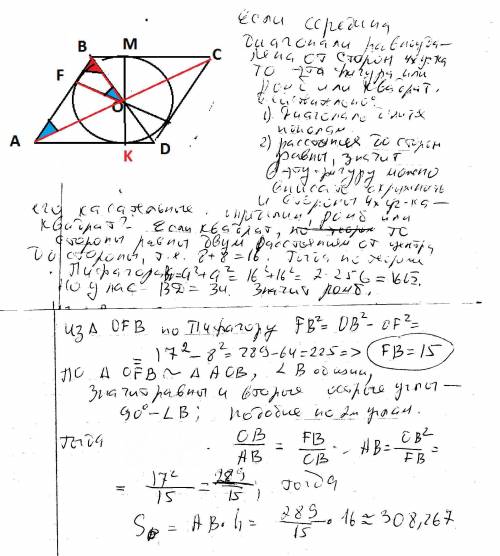 B M C
F
O
A
K D
Если середина
диагонали равноуда-
лена от сторон
то эта фигура или
ромб или квадрат.
1) диагонали
пополам.
2) расстояния до сторон
равны, значит
в эту фигуру можно
вписать окружность
и стороны
его касательные. ромб или
квадрат. Если квадрат, то
стороны равны двум расстояниям от центра
до стороны, т.е. 8+8=16. Тогда по
Пифагора
Но у нас BD = 34. Значит ромб.
Из Δ OFB по Пифагору FB² = OB² - OF² =
= 17² - 8² = 289 - 64 = 225 => FB = 15
ПО Δ OFB ~ Δ AOB, ∠B общий,
Значит равны и вторые острые углы -
90° - ∠B; Подобие по 2м углам.
Тогда OB/AB = FB/OB AB = OB²/FB =
= 17²/15 = 289/15; тогда
S = AB · h = 289/15 · 16 ≈ 308,267